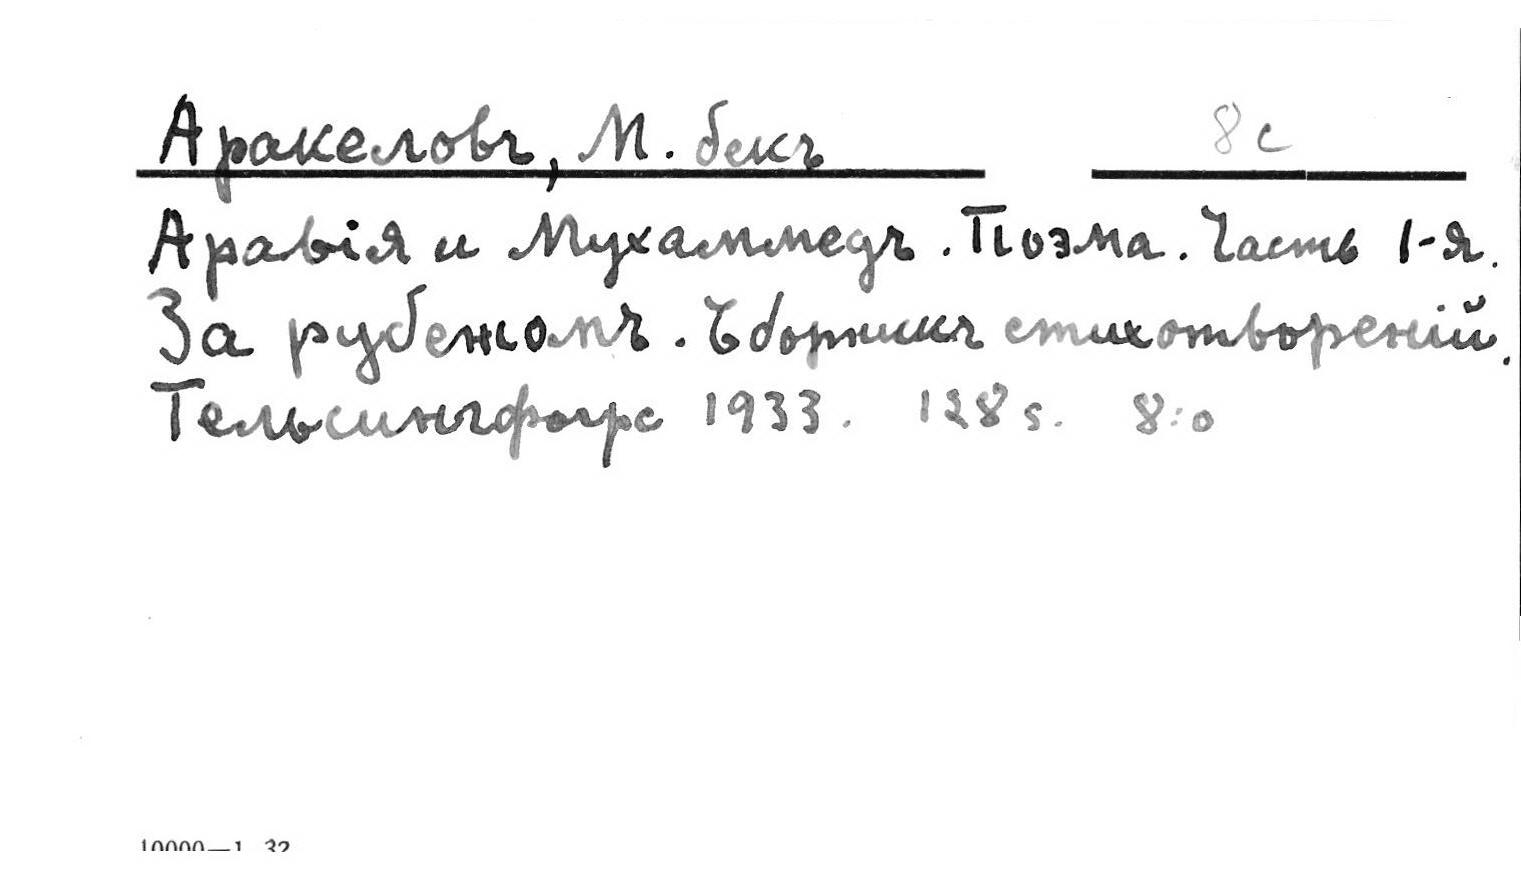 Аракеловъ, М. бекъ 8c
Аравія и Мухаммедъ. Поэма. Часть 1-я.
За рубежомъ. Сборникъ стихотвореній.
Гельсингфорс 1933. 128 s. 8:o
10000—1. 32